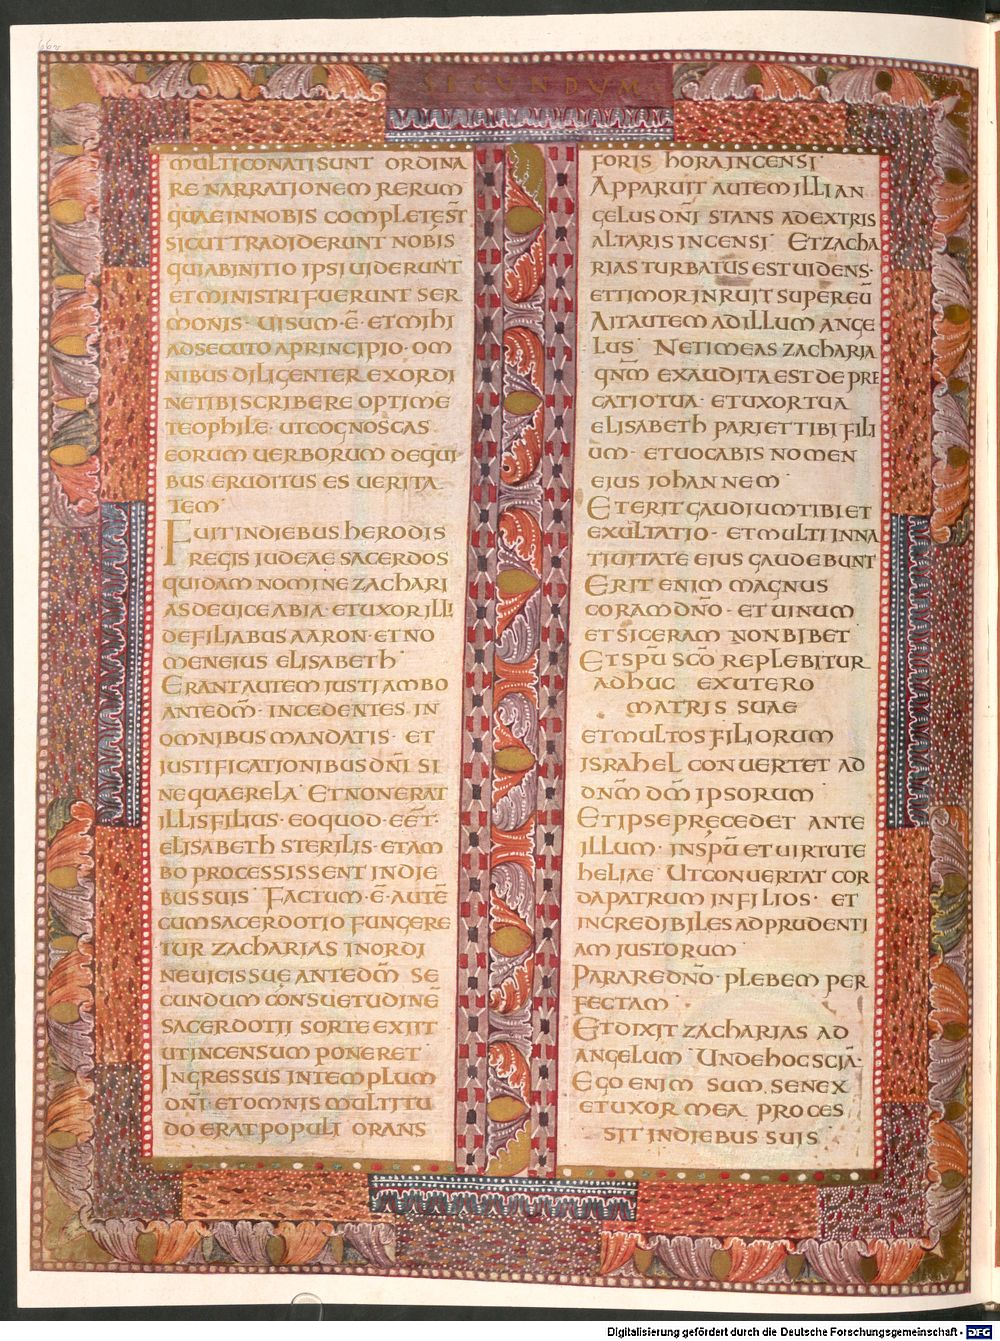 SECUNDUM
MULTI CONATI SUNT ORDINA
RE NARRATIONEM RERUM
QUAE IN NOBIS COMPLETĘ S̄T
SICUT TRADIDERUNT NOBIS
QUI AB INITIO IPSI UIDERUNT
ET MINISTRI FUERUNT SER
MONIS · UISUM · Ē · ET MIHI
ADSECUTO A PRINCIPIO · OM
NIBUS DILIGENTER EX ORDI
NE TIBI SCRIBERE OPTIME
TEOPHILE · UT COGNOSCAS
EORUM UERBORUM DE QUI
BUS · ERUDITUS ES UERITA
TEM ·
FUIT IN DIEBUS HERODIS
REGIS IUDEAE SACERDOS
QUIDAM NOMINE ZACHARI
AS DE UICE ABIA · ET UXOR ILLI
DE FILIABUS AARON · ET NO
MEN EIUS ELISABETH ·
ERANT AUTEM IUSTI AMBO
ANTE DM̄ · INCEDENTES IN
OMNIBUS MANDATIS · ET
IUSTIFICATIONIBUS DN̄I SI
NE QUAERELA · ET NON ERAT
ILLIS FILIUS · EO QUOD · EĒT ·
ELISABETH STERILIS · ET AM
BO PROCESSISSENT IN DIE
BUS SUIS · FACTUM · Ē · AUTĒ
CUM SACERDOTIO FUNGERE
TUR ZACHARIAS IN ORDI
NE UICIS SUE ANTE DM̄ SE
CUNDUM CONSUETUDINĒ
SACERDOTII SORTE EXIIT
UT INCENSUM PONERET ·
INGRESSUS IN TEMPLUM
DN̄I ET OMNIS MULTITU
DO ERAT POPULI ORANS
FORIS HORA INCENSI ·
APPARUIT AUTEM ILLI AN
GELUS DN̄I STANS A DEXTRIS
ALTARIS INCENSI · ET ZACHA
RIAS TURBATUS EST UIDENS ·
ET TIMOR INRUIT SUPER EŪ
AIT AUTEM AD ILLUM ANGE
LUS · NE TIMEAS ZACHARIA
QNM̄ EXAUDITA EST DEPRE
CATIO TUA · ET UXOR TUA
ELISABETH PARIET TIBI FILI
UM · ET UOCABIS NOMEN
EIUS IOHANNEM ·
ET ERIT GAUDIUM TIBI ET
EXULTATIO · ET MULTI IN NA
TIUITATE EIUS GAUDEBUNT
ERIT ENIM MAGNUS
CORAM DN̄O · ET UINUM
ET SICERAM NON BIBET
ET SPŪ SCŌ REPLEBITUR
ADHUC EX UTERO
MATRIS SUAE
ET MULTOS FILIORUM
ISRAHEL CONUERTET AD
DN̄M DM̄ IPSORUM ·
ET IPSE PRECEDET ANTE
ILLUM · IN SPŪ ET UIRTUTE
HELIAE · UT CONUERTAT COR
DA PATRUM IN FILIOS · ET
INCREDIBILES AD PRUDENTI
AM IUSTORUM ·
PARARE DN̄O · PLEBEM PER
FECTAM ·
ET DIXIT ZACHARIAS AD
ANGELUM · UNDE HOC SCIĀ ·
EGO ENIM SUM SENEX
ET UXOR MEA PROCES
SIT IN DIEBUS SUIS ·
Digitalisierung gefördert durch die Deutsche Forschungsgemeinschaft - DFG